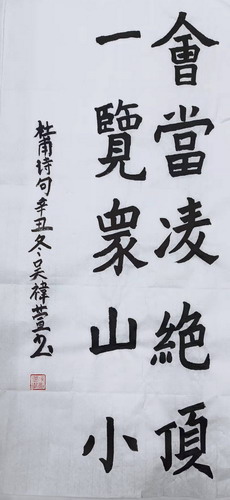 會當凌絶頂
一覽衆山小
杜甫诗句辛丑冬吴樟萱书